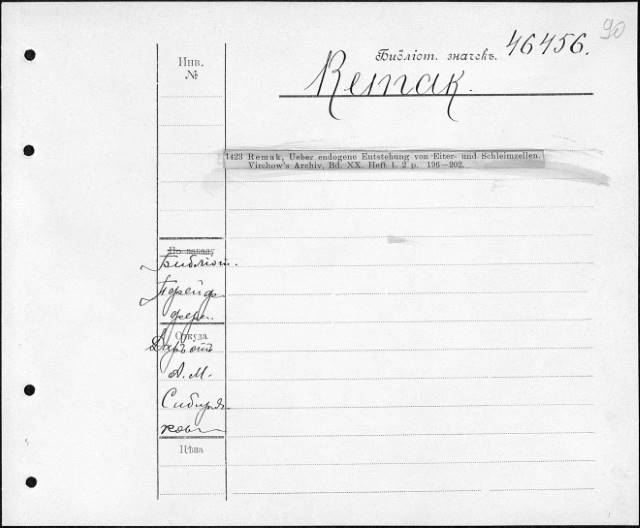 90
Инв.
№
Библіот. значекъ. 46456.
Remak.
1423 Remak, Ueber endogene Entstehung von Eiter- und Schleimzellen.
Virchow's Archiv, Bd. XX. Heft 1. 2 p. 196—202.
По заказу
Библіот.
Прейф-
фера.
Откуда
Даръ отъ
А. М.
Сибиря-
кова
Цѣна